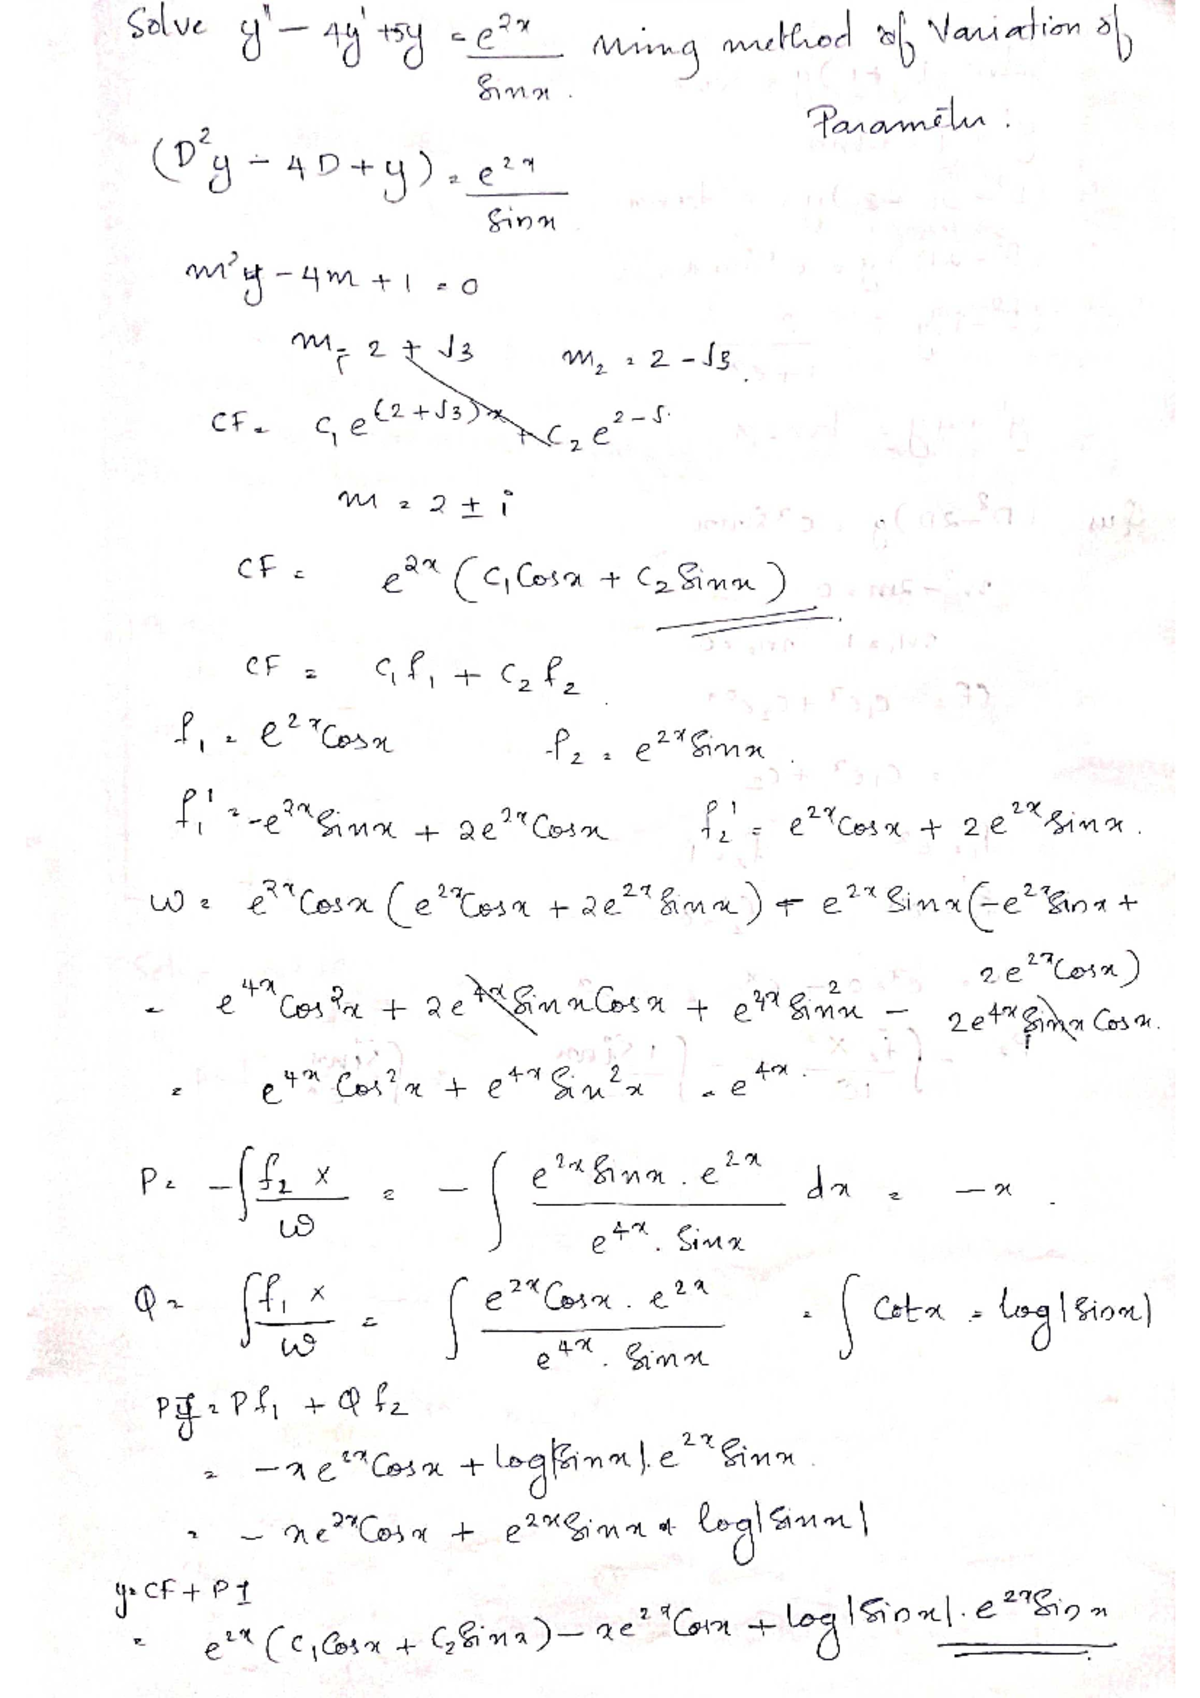 Solve y'' - 4y' + 5y = e^2x / Sinx using method of Variation of
Parameter.
(D²y - 4D + y) = e^2x / Sinx
m²y - 4m + 1 = 0
m₁ = 2 + √3 m₂ = 2 - √3.
CF = C₁ e^(2+√3)x + C₂ e^2-√
m = 2 ± i
CF = e^2x (C₁ Cosx + C₂ Sinx)
CF = C₁f₁ + C₂f₂
f₁ = e^2x Cosx f₂ = e^2x Sinx.
f₁' = -e^2x Sinx + 2e^2x Cosx f₂' = e^2x Cosx + 2e^2x Sinx.
W = e^2x Cosx (e^2x Cosx + 2e^2x Sinx) - e^2x Sinx (-e^2x Sinx +
2e^2x Cosx)
= e^4x Cos²x + 2e^4x Sinx Cosx + e^4x Sin²x - 2e^4x Sinx Cosx.
= e^4x Cos²x + e^4x Sin²x = e^4x.
P = -∫ f₂ X / W = -∫ e^2x Sinx . e^2x / e^4x . Sinx dx = -x.
Q = ∫ f₁ X / W = ∫ e^2x Cosx . e^2x / e^4x . Sinx = ∫ Cotx = log|Sinx|
PI = Pf₁ + Qf₂
= -xe^2x Cosx + log|Sinx|. e^2x Sinx.
= -xe^2x Cosx + e^2x Sinx log|Sinx|
y = CF + PI
= e^2x (C₁ Cosx + C₂ Sinx) - xe^2x Cosx + log|Sinx|. e^2x Sinx